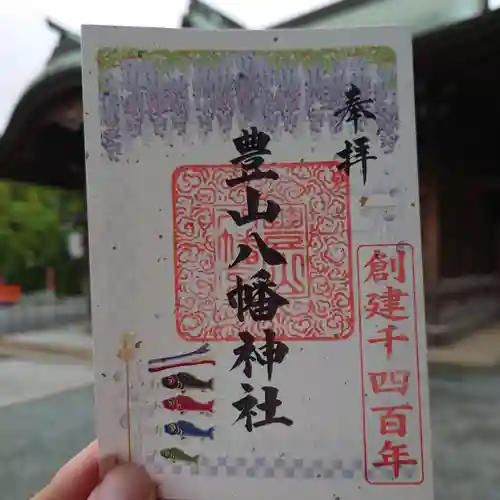 奉拝
豊山八幡神社
創建千四百年